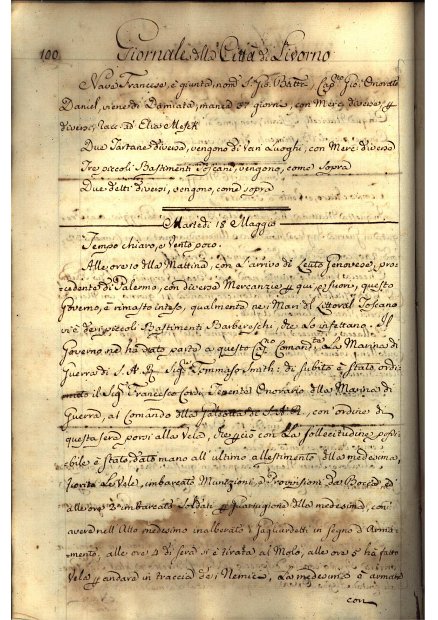 100 Giornale della Città di Livorno
Nave Francese, è giunta, nom.ta S. Gio. Batta, Cap.no Gio. Onorato
Daniel, viene di Damiata, manca 37 giorni, con Merc. diverse, p
diversi, Racc. ad Elia Mesek
Due Tartane diverse, vengono di Vari Luoghi, con Merc. diverse
Tre piccoli Bastimenti Toscani, vengono, come sopra
Due detti diversi, vengono, come sopra
Martedì 18 Maggio
Tempo chiaro, e Vento poco.
Alle ore 10 della Mattina, con l'arrivo di Leuto Genovese, pro,
cedente di Palermo, con diverse Mercanzie p qui, e fuori, questo
Governo, è rimasto inteso, qualmente nei Mari di Littorale Toscano
vi è dei piccoli Bastimenti Barbereschi, che lo infettano. Il
Governo ne ha dato parte a questo Comand.te la Marina di
Guerra di S. A. R. Sig.re Tommaso Smith; di subito è stato ordi,
nato il Sig.re Francesco Tenente Onorario della Marina di
Guerra, al Comando della Galeotta di S. A. R., con ordine di
questa sera porsi alla Vela, che perciò con la sollecitudine possi,
bile è stato dato mano all'ultimo allestimento della medesima,
le Vele, imbarcato Munizioni, e Provvisioni da Bocca, e
alle ore 2 imbarcato Soldati p Guarnigione della medesima, con
avere nell'Atto medesimo inalberato i Gagliardetti in segno d'Arma,
mento, alle ore 4 di sera si è tirata al Molo, alle ore 5 ha fatto
Vela p andare in traccia de' i Nemici, la medesima è armata
con